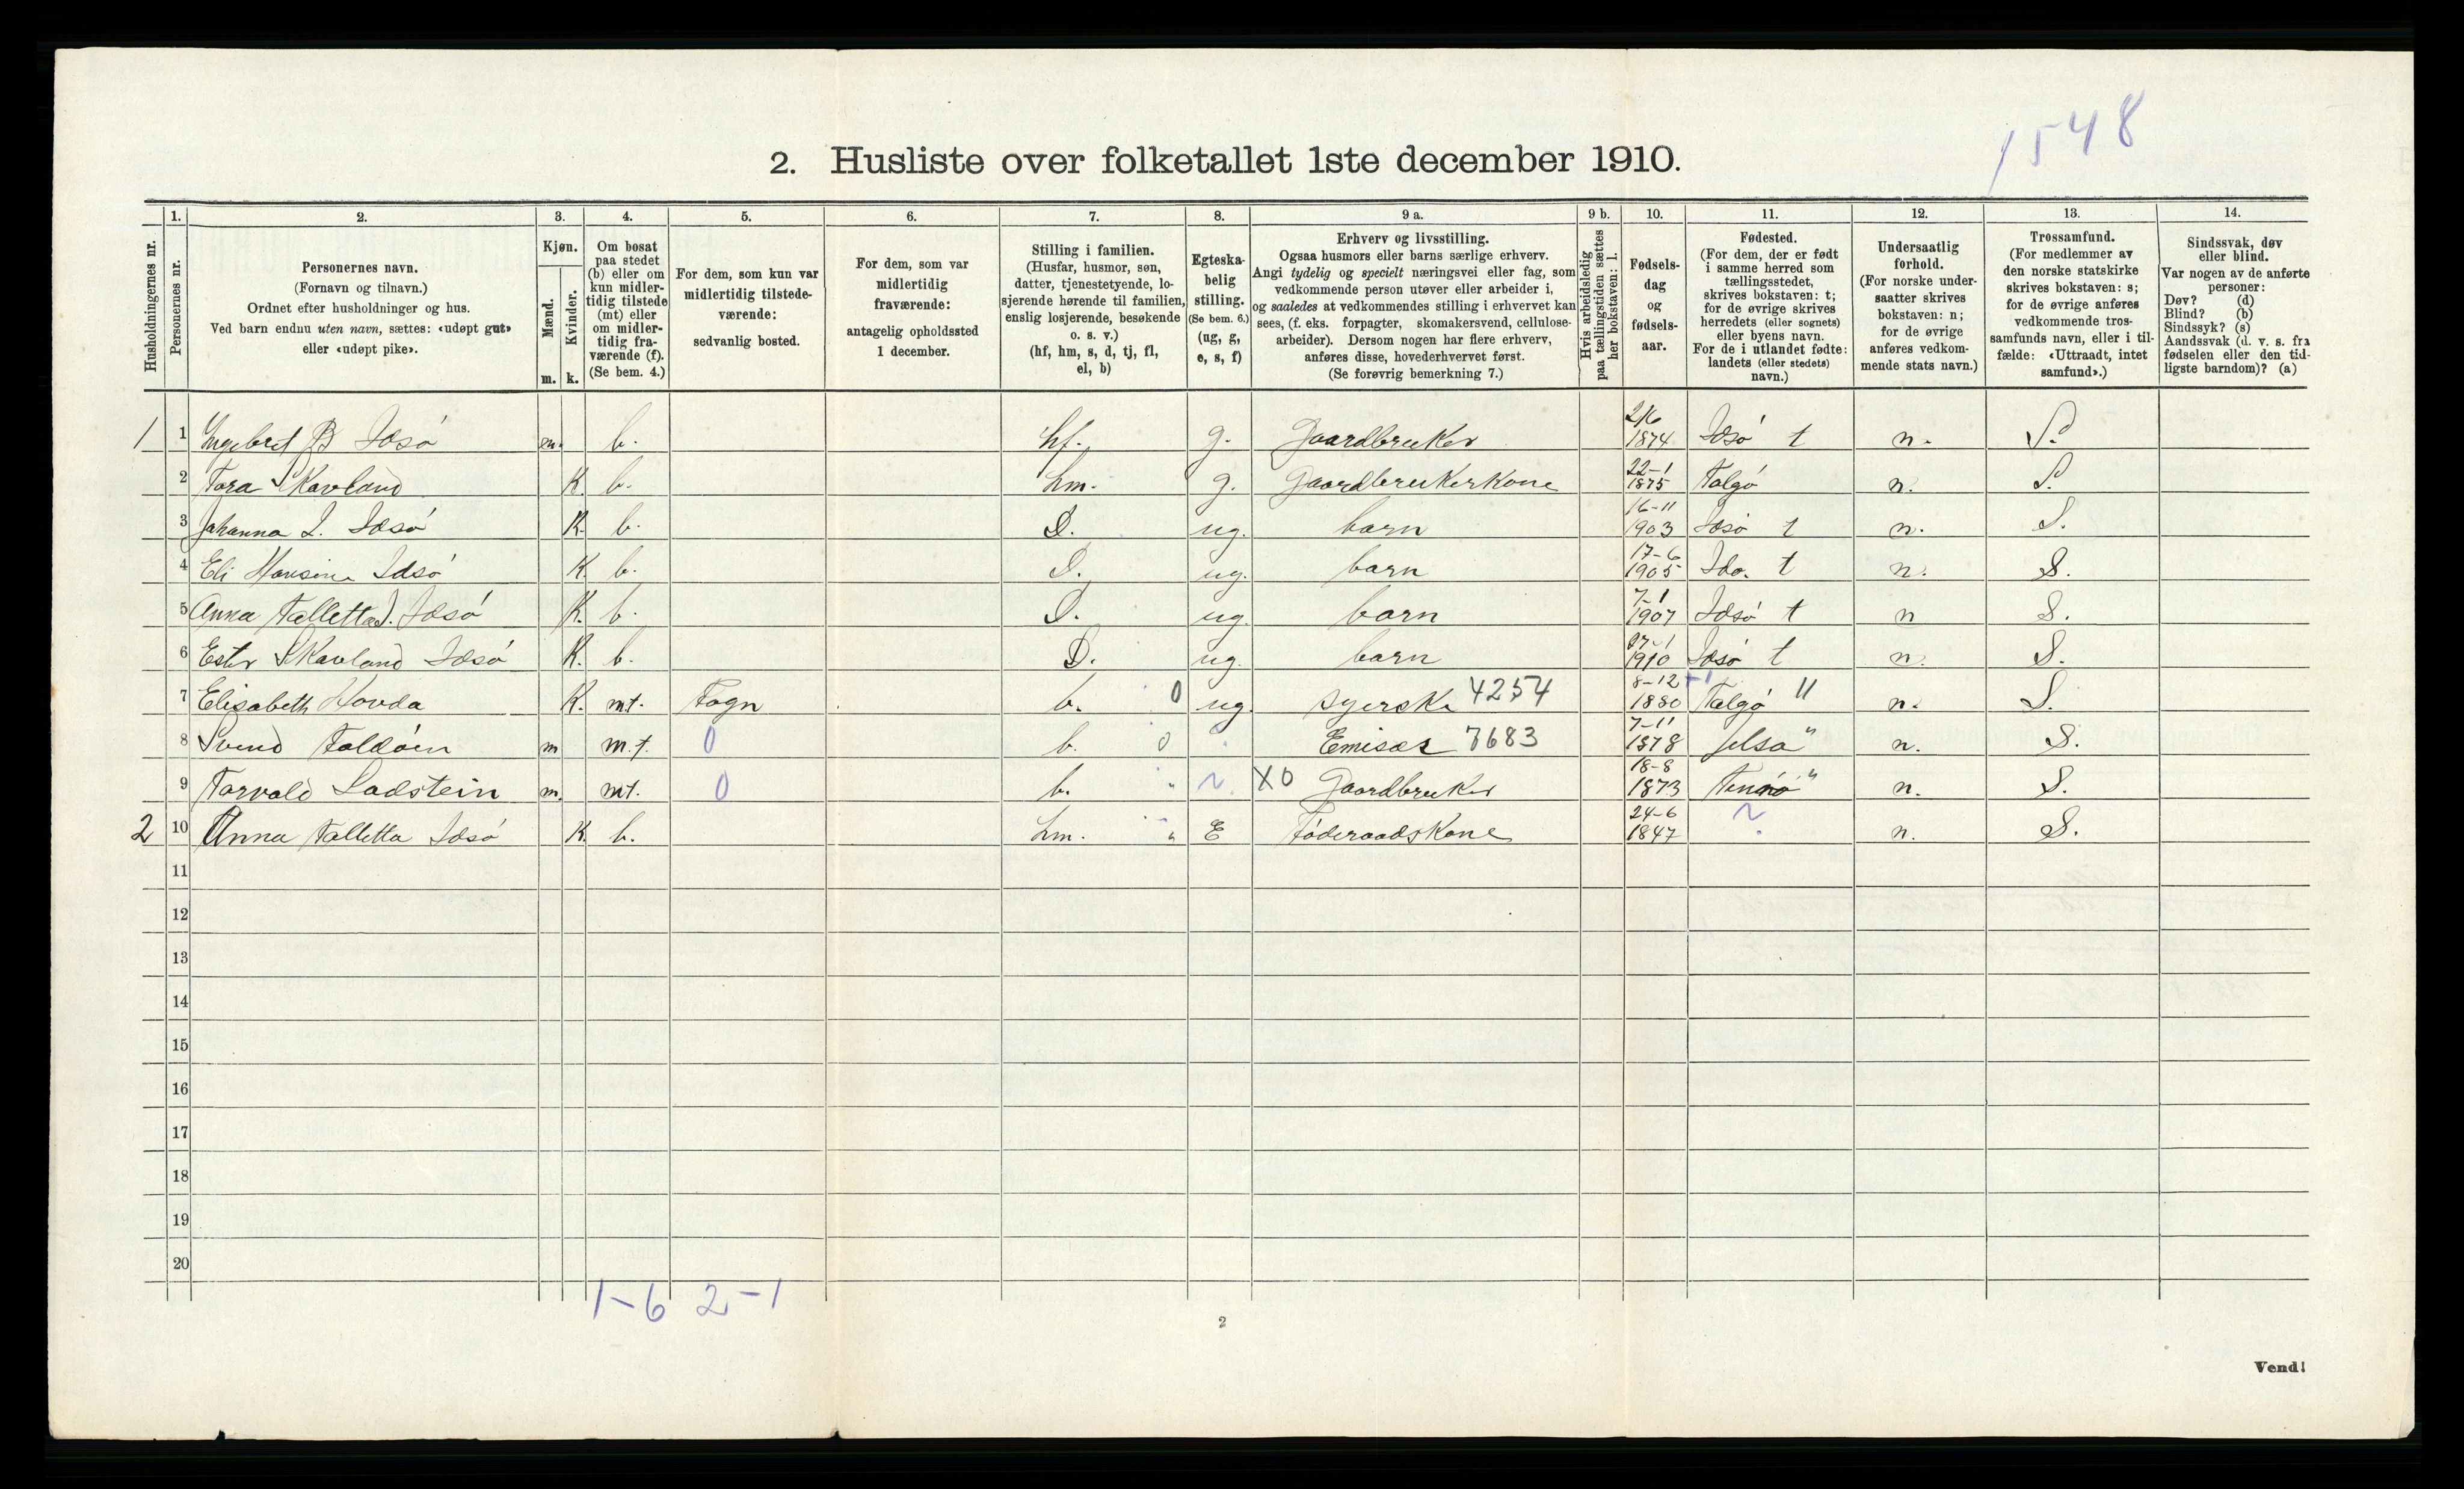 1548
2. Husliste over folketallet 1ste december 1910.
Husholdningernes nr.
1.
Personernes nr.
2.
Personernes navn.
(Fornavn og tilnavn.)
Ordnet efter husholdninger og hus.
Ved barn endnu uten navn, sættes: «udøpt gut»
eller «udøpt pike».
3.
Kjøn.
Mænd.
Kvinder.
m. k.
4.
Om bosat
paa stedet
(b) eller om
kun midler-
tidig tilstede
(mt) eller
om midler-
tidig fra-
værende (f).
(Se bem. 4.)
5.
For dem, som kun var
midlertidig tilstede-
værende:
sedvanlig bosted.
6.
For dem, som var
midlertidig
fraværende:
antagelig opholdssted
1 december.
7.
Stilling i familien.
(Husfar, husmor, søn,
datter, tjenestetyende, lo-
sjerende hørende til familien,
enslig losjerende, besøkende
o. s. v.)
(hf, hm, s, d, tj, fl,
el, b)
8.
Egteska-
belig
stilling.
(Se bem. 6.)
(ug, g,
e, s, f)
9 a.
Erhverv og livsstilling.
Ogsaa husmors eller barns særlige erhverv.
Angi tydelig og specielt næringsvei eller fag, som
vedkommende person utøver eller arbeider i,
og saaledes at vedkommendes stilling i erhvervet kan
sees, (f. eks. forpagter, skomakersvend, cellulose-
arbeider). Dersom nogen har flere erhverv,
anføres disse, hovederhvervet først.
(Se forøvrig bemerkning 7.)
9 b.
Hvis arbeidsledig
paa tællingstiden sættes
her bokstaven: l.
10.
Fødsels-
dag
og
fødsels-
aar.
11.
Fødested.
(For dem, der er født
i samme herred som
tællingsstedet,
skrives bokstaven: t;
for de øvrige skrives
herredets (eller sognets)
eller byens navn.
For de i utlandet fødte:
landets (eller stedets)
navn.)
12.
Undersaatlig
forhold.
(For norske under-
saatter skrives
bokstaven: n;
for de øvrige
anføres vedkom-
mende stats navn.)
13.
Trossamfund.
(For medlemmer av
den norske statskirke
skrives bokstaven: s;
for de øvrige anføres
vedkommende tros-
samfunds navn, eller i til-
fælde: «Uttraadt, intet
samfund».)
14.
Sindssvak, døv
eller blind.
Var nogen av de anførte
personer:
Døv? (d)
Blind? (b)
Sindssyk? (s)
Aandssvak (d. v. s. fra
fødselen eller den tid-
ligste barndom)? (a)
1 1 Ingebret B Idsö m. b. hf. g. Gaardbruker 2/6 1874 Idsö t n. S.
2 Tora Skavland K. b. hm. g. Gaardbrukerkone 22-1 1875 Talgö n. S.
3 Johanna I. Idsö K. b. D. ug. barn 16-11 1903 Idsö t n. S.
4 Eli Idsö K. b. D. ug. barn 17-6 1905 Ido. t n. S.
5 Anna Talletta I. Idsö K. b. D. ug. barn 7-1 1907 Idsö t n S.
6 Ester Skavland Idsö K. b. D. ug. barn 27-1 1910 Idsö t n. S.
7 Elisabeth Hovda K. mt. Fogn b. 0 ug. syerske 4254 8-12 1880 +1 Talgö " n. S.
8 Svend Foldöen m m.t. 0 b. 0 Emisær 7683 7-11 1878 Jelsa " n. S.
9 Torvald Ladstein m. mt. 0 b. " ~ X0 Gaardbruker 18-8 1873 " n. S.
2 10 Anna Talletta Idsö K. b. hm. " E Föderaadskone 24-6 1847 ~ n. S.
11
12
13
14
15
16
17
18
19
20
1-6 2-1
2
Vend!